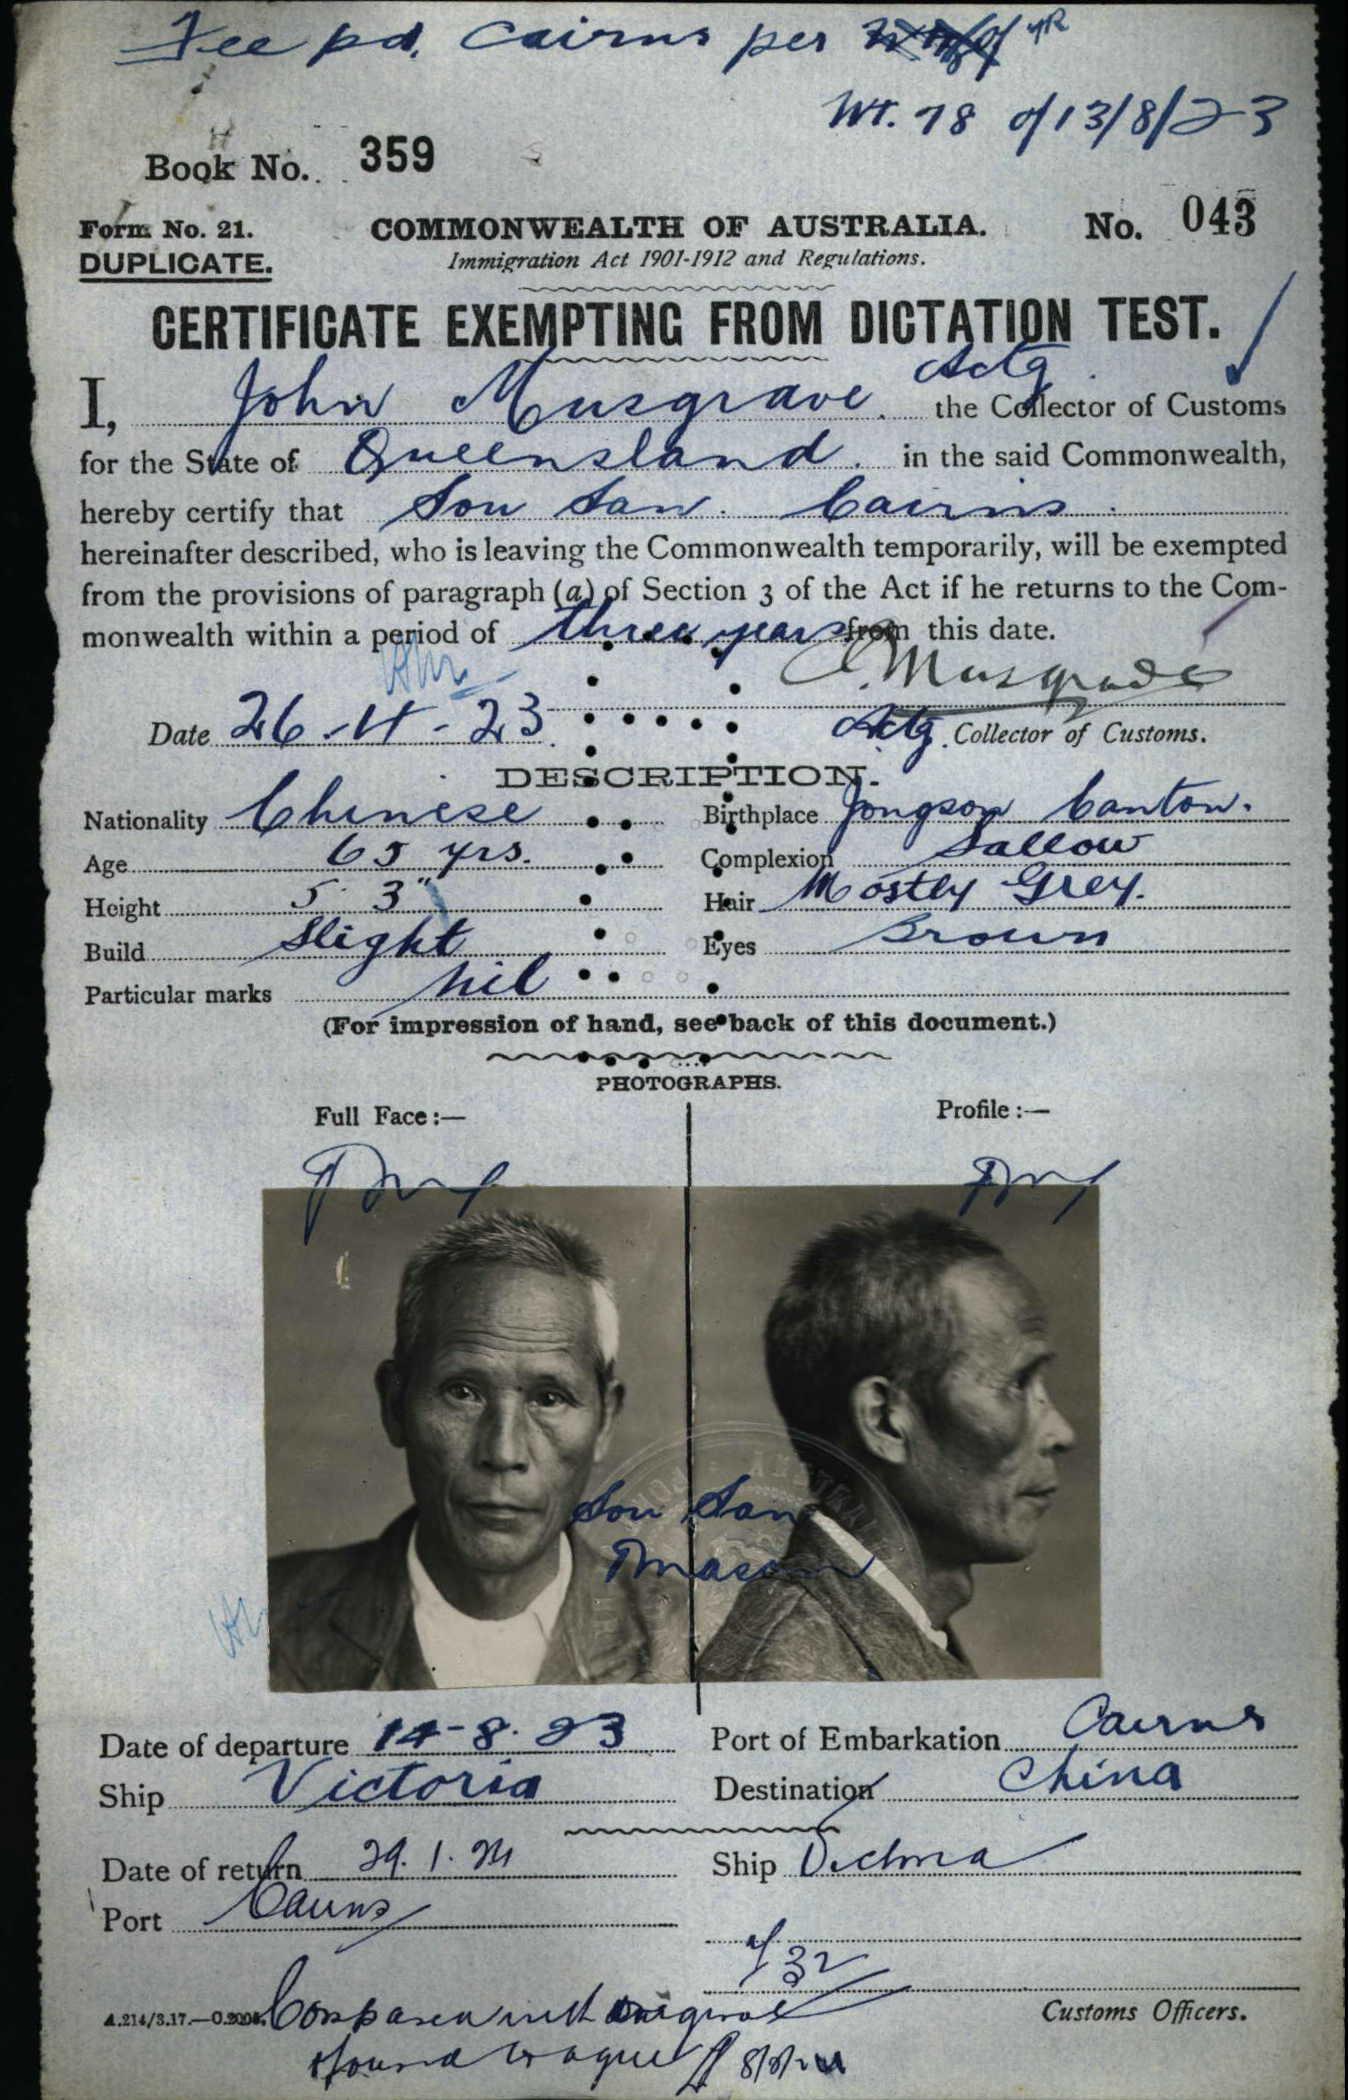 Fee pd. Cairns per
Wt. 78 of 13/8/23
Book No. 359
Form No. 21. COMMONWEALTH OF AUSTRALIA. No. 043
DUPLICATE. Immigration Act 1901-1912 and Regulations.
CERTIFICATE EXEMPTING FROM DICTATION TEST.
I, John Musgrave Actg. the Collector of Customs
for the State of Queensland. in the said Commonwealth,
hereby certify that Sou San. Cairns.
hereinafter described, who is leaving the Commonwealth temporarily, will be exempted
from the provisions of paragraph (a) of Section 3 of the Act if he returns to the Com-
monwealth within a period of three years from this date.
Musgrave
Date 26-4-23 Actg. Collector of Customs.
DESCRIPTION.
Nationality Chinese Birthplace Jongson Canton.
Age 65 yrs. Complexion Sallow
Height 5' 3" Hair Mostly Grey.
Build Slight Eyes Brown
Particular marks nil
(For impression of hand, see back of this document.)
PHOTOGRAPHS.
Full Face:— Profile:—
Sou San
Date of departure 14-8-23 Port of Embarkation Cairns
Ship Victoria Destination China
Date of return 29.1.24 Ship Victoria
Port Cairns
Compared with original
A.214/3.17.—O.2005. Customs Officers.
found to agree